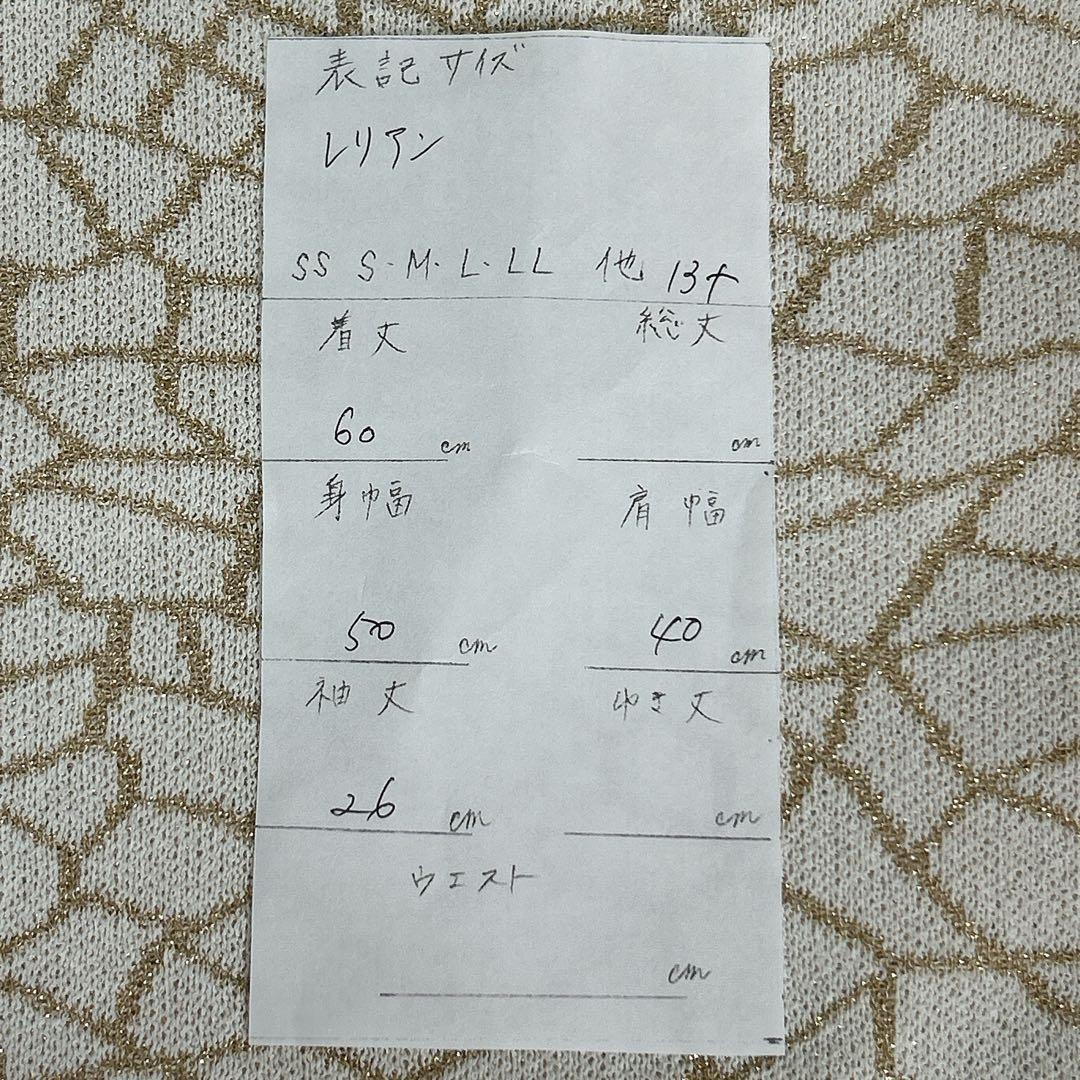 表記サイズ
レリアン
SS S・M・L・LL 他 13+
着丈 総丈
60 cm cm
身幅 肩幅
50 cm 40 cm
袖丈 ゆき丈
26 cm cm
ウエスト
cm